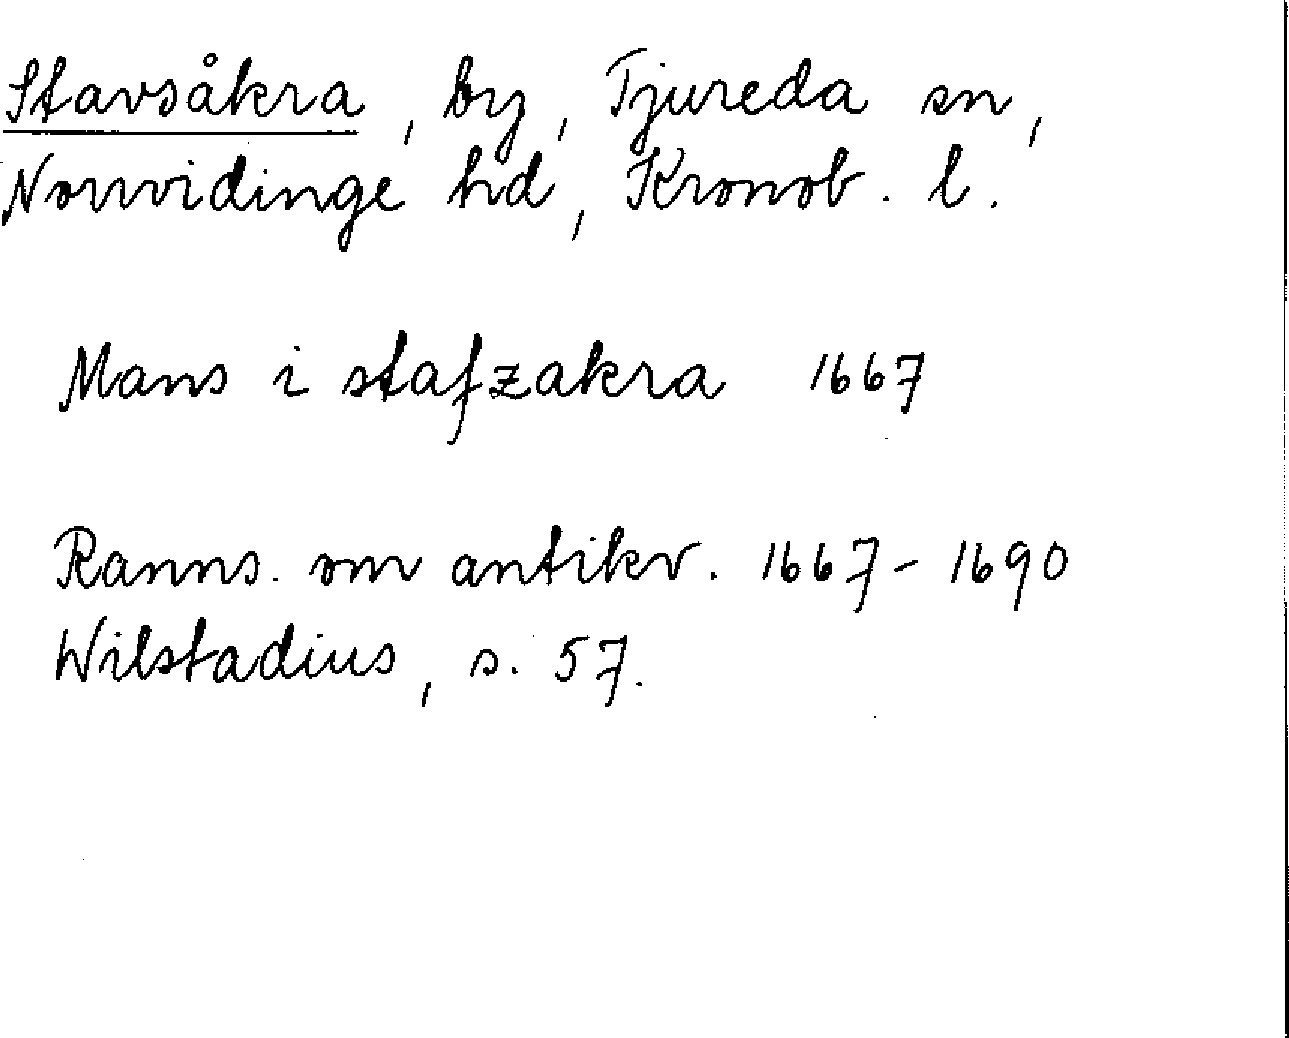 Stavsåkra, by, Tjureda sn,
Norrvidinge hd, Kronob. l.
Mans i stafzakra 1667
Ranns. om antikv. 1667-1690
Wilstadius, s. 57.